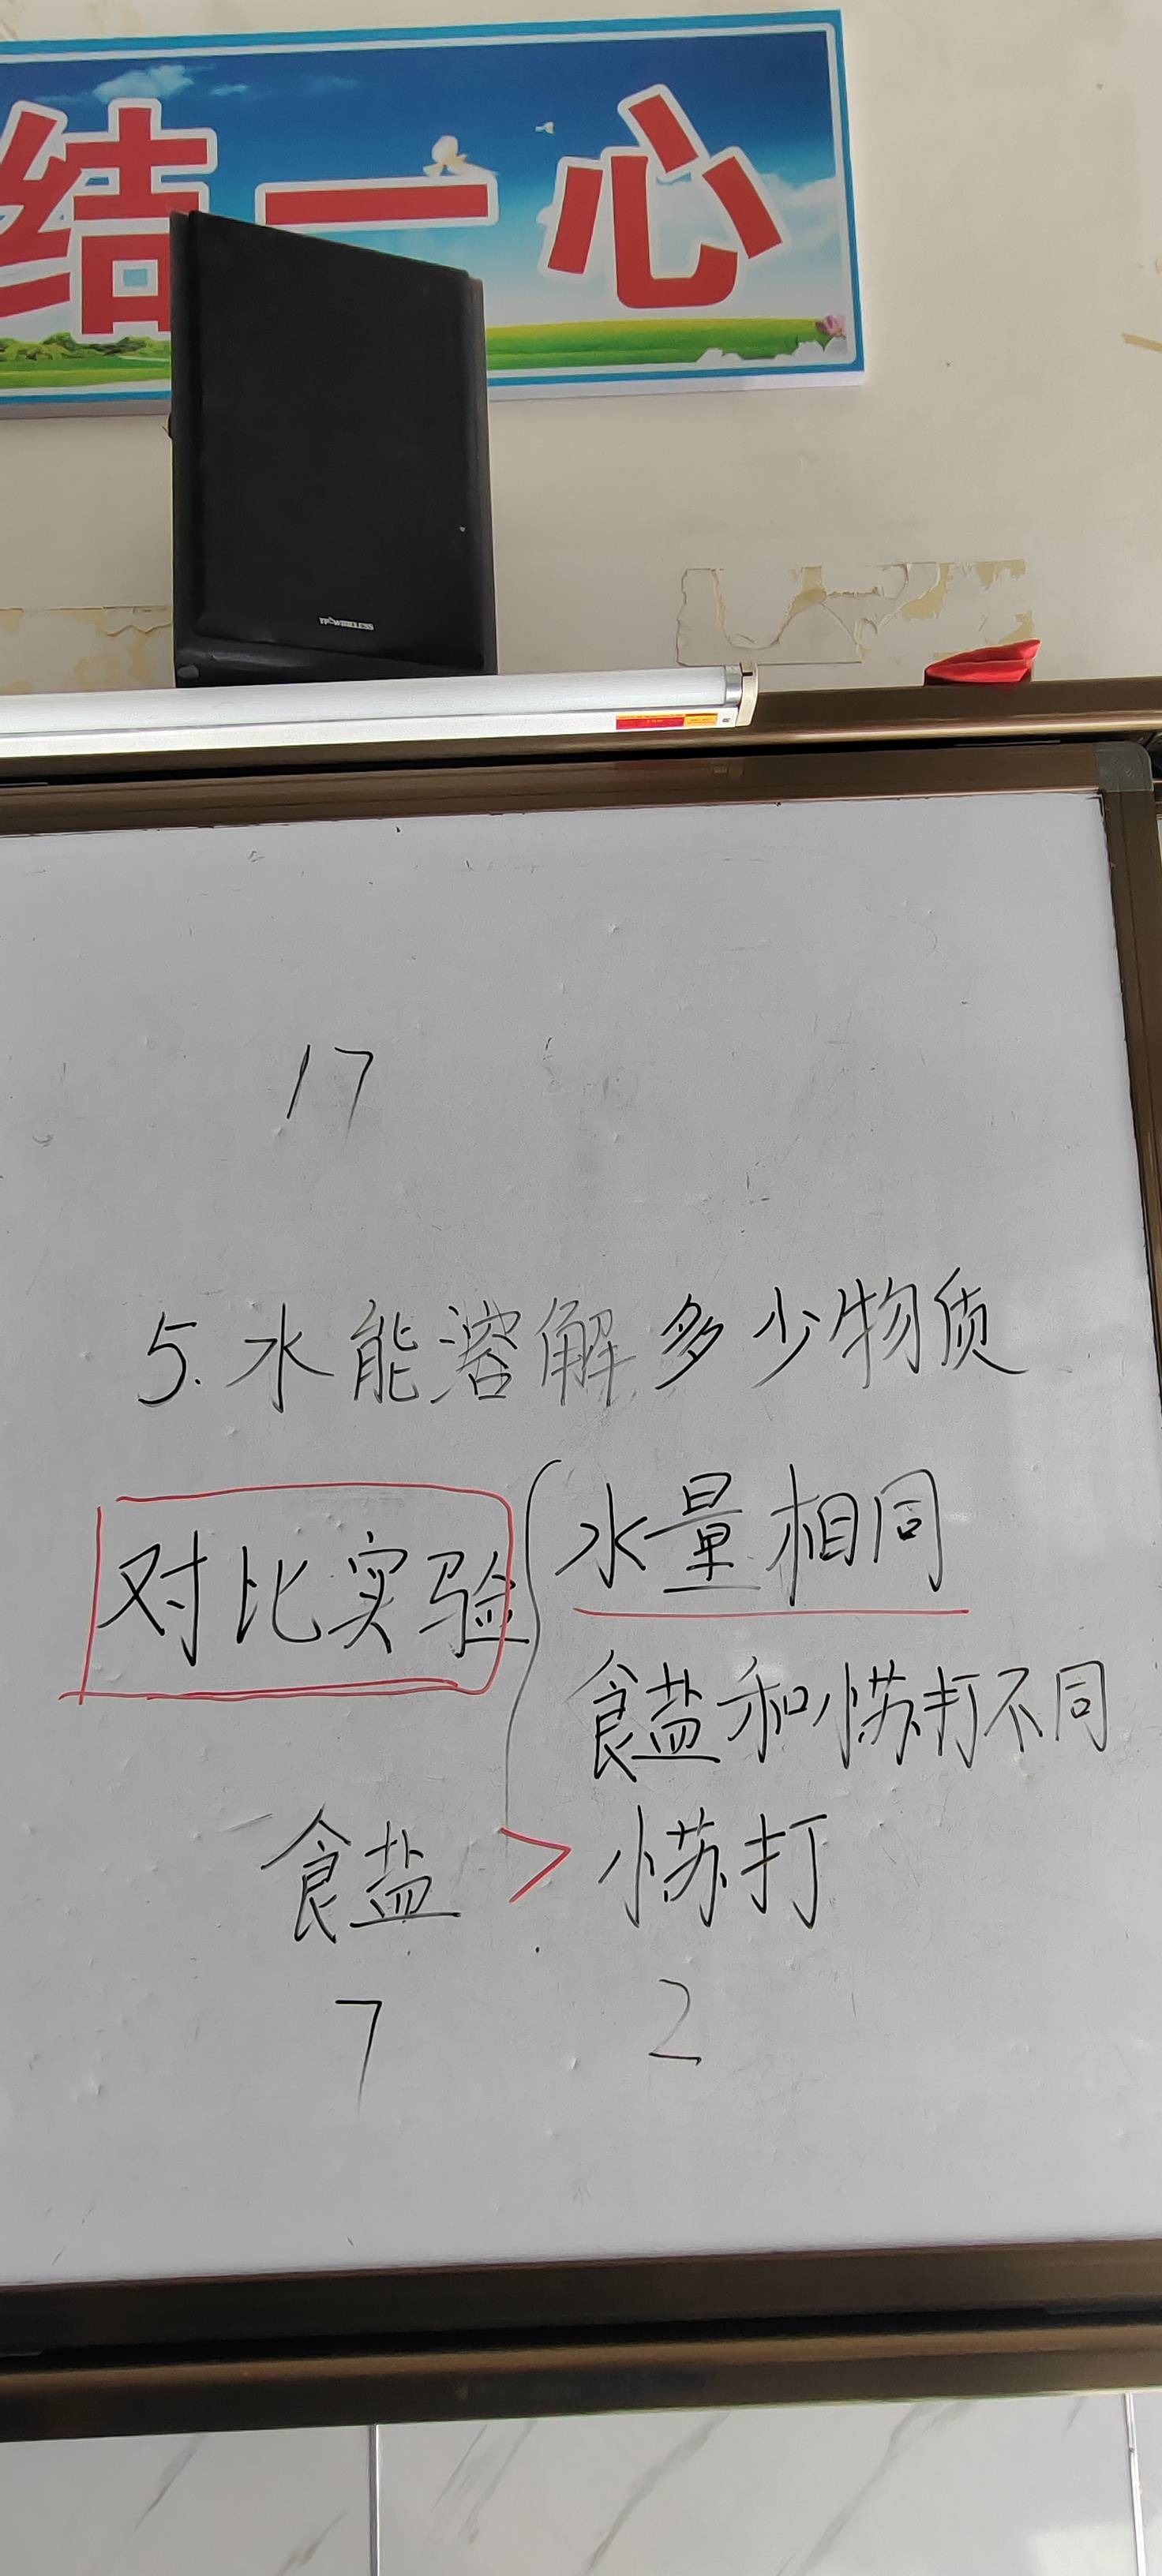 结一心
TP-WIRELESS
17
5.水能溶解多少物质
对比实验
水量相同
食盐和小苏打不同
食盐 > 小苏打
7 2